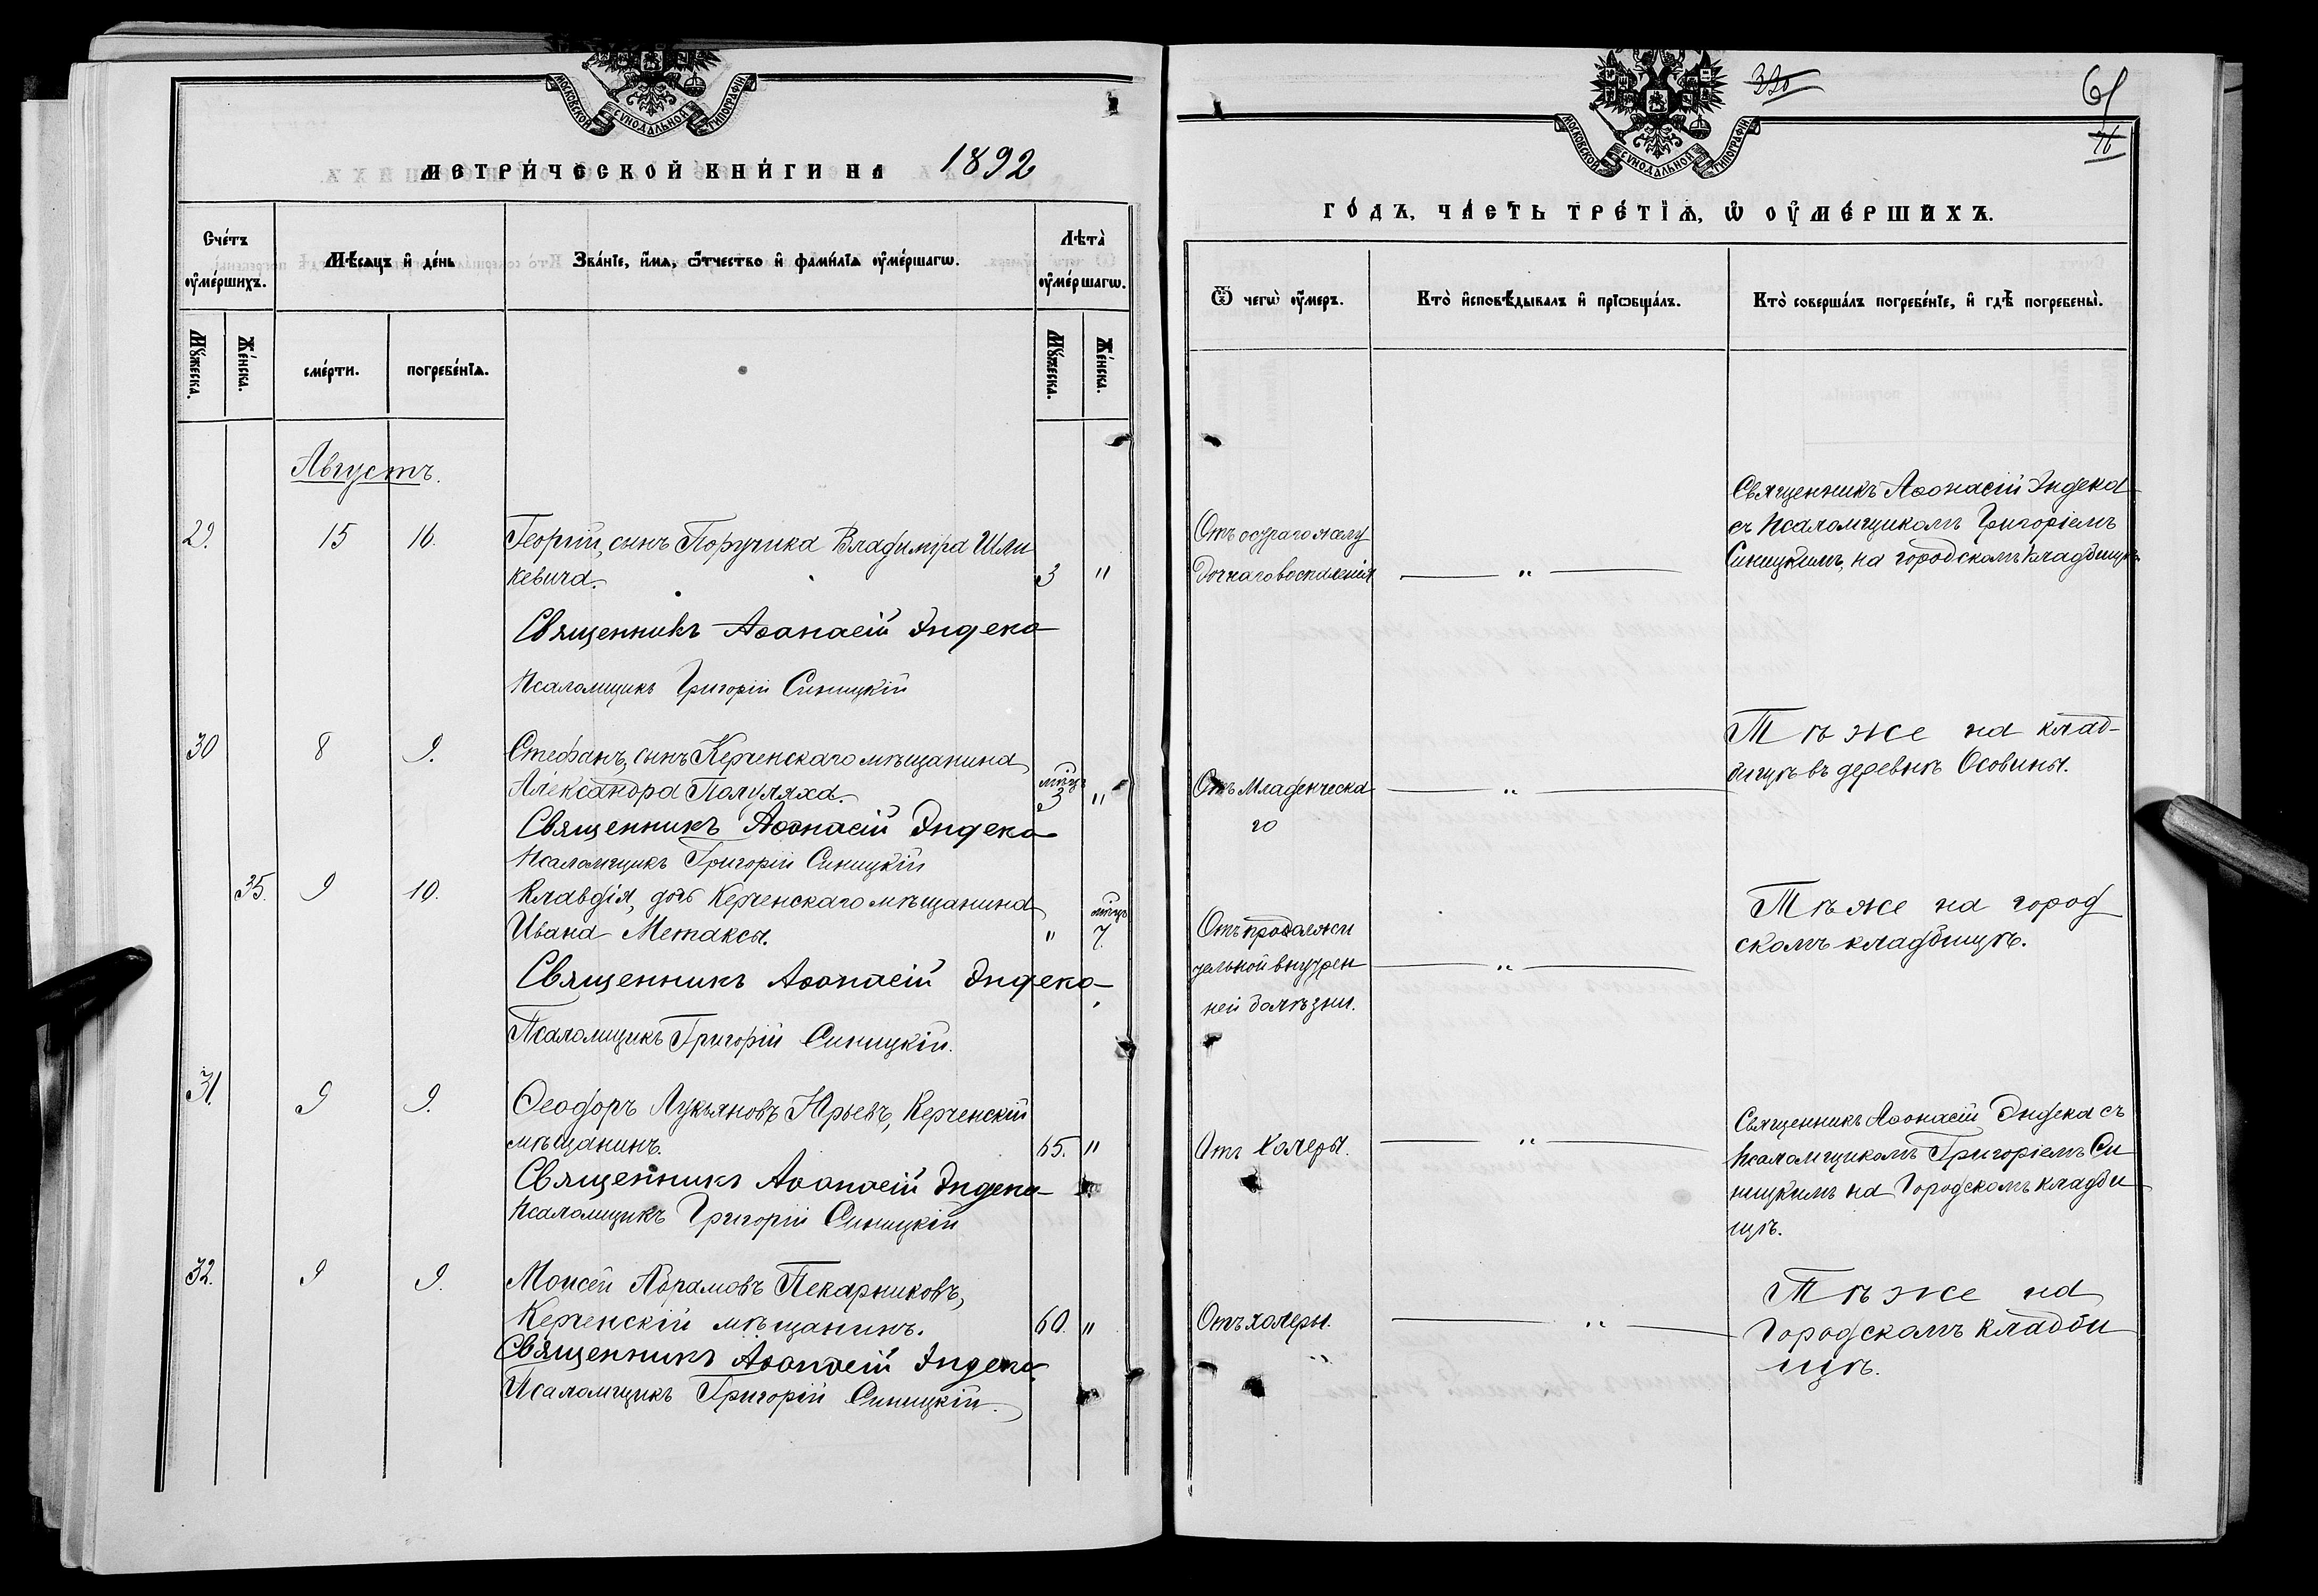 МОСКОВСКОЙ СѴНОДАЛЬНОЙ ТИПОГРАФІИ
МЕТРИ́ЧЕСКОЙ КНИ́ГИ НА 1892
Сче́тъ ᲂу҆ме́ршихъ.
Мѣ́сяцъ и҆ де́нь
Зва́нїе, и҆́мѧ, ѻ҆́тчество и҆ фами́лїѧ ᲂу҆ме́ршагѡ.
Лѣта̀ ᲂу҆ме́ршагѡ.
Мꙋ́жеска.
Же́нска.
сме́рти.
погребе́нїѧ.
Мꙋ́жеска.
Же́нска.
Августъ.
29. 15 16. Георгій, сынъ Поручика Владиміра Шли
кевича. 3 "
Священникъ Аѳанасій Эндека
Псаломщикъ Григорій Синицкій
30 8 9. Стефанъ, сынъ Керченскаго мѣщанина
Александра Полуляха. мѣц. 3 "
Священникъ Аѳанасій Эндека
Псаломщикъ Григорій Синицкій
35. 9 10. Клавдія, дочь Керченскаго мѣщанина
Ивана Метаксы. " мѣц. 7
Священникъ Аѳанасій Эндека
Псаломщикъ Григорій Синицкій.
31. 9 9. Ѳеодоръ Лукьяновъ Юрьевъ, Керченскій
мѣщанинъ. 65. "
Священникъ Аѳанасій Эндека
Псаломщикъ Григорій Синицкій
32. 9 9. Моисей Абрамовъ Пекарниковъ,
Керченскій мѣщанинъ. 60. "
Священникъ Аѳанасій Эндека
Псаломщикъ Григорій Синицкій.
МОСКОВСКОЙ СѴНОДАЛЬНОЙ ТИПОГРАФІИ
65
76
ГО́ДЪ, ЧА́СТЬ ТРЕ́ТЇѦ, Ѡ҆ ОУ҆МЕ́РШИХЪ.
Ѿ чегѡ̀ ᲂу҆́меръ.
Кто̀ и҆сповѣ́дывалъ и҆ прїѡбща́лъ.
Кто̀ соверша́лъ погребе́нїе, и҆ гдѣ̀ погребены̀.
Отъ остраго желу
дочнаго воспаленія
"
Священникъ Аѳонасій Эндека
съ Псаломщикомъ Григоріемъ
Синицкимъ, на городскомъ кладбищѣ
Отъ Младенческа
го
"
Тѣ же на клад-
бищѣ въ деревнѣ Осовины.
Отъ продолжи
тельной внутрен
ней болѣзни.
"
Тѣ же на город
скомъ кладбищѣ.
Отъ Холеры.
"
Священникъ Аѳонасій Эндека съ
Псаломщикомъ Григоріемъ Си
ницкимъ на Городскомъ кладби
щѣ.
Отъ холеры.
"
Тѣ же на
Городскомъ кладби
щѣ.